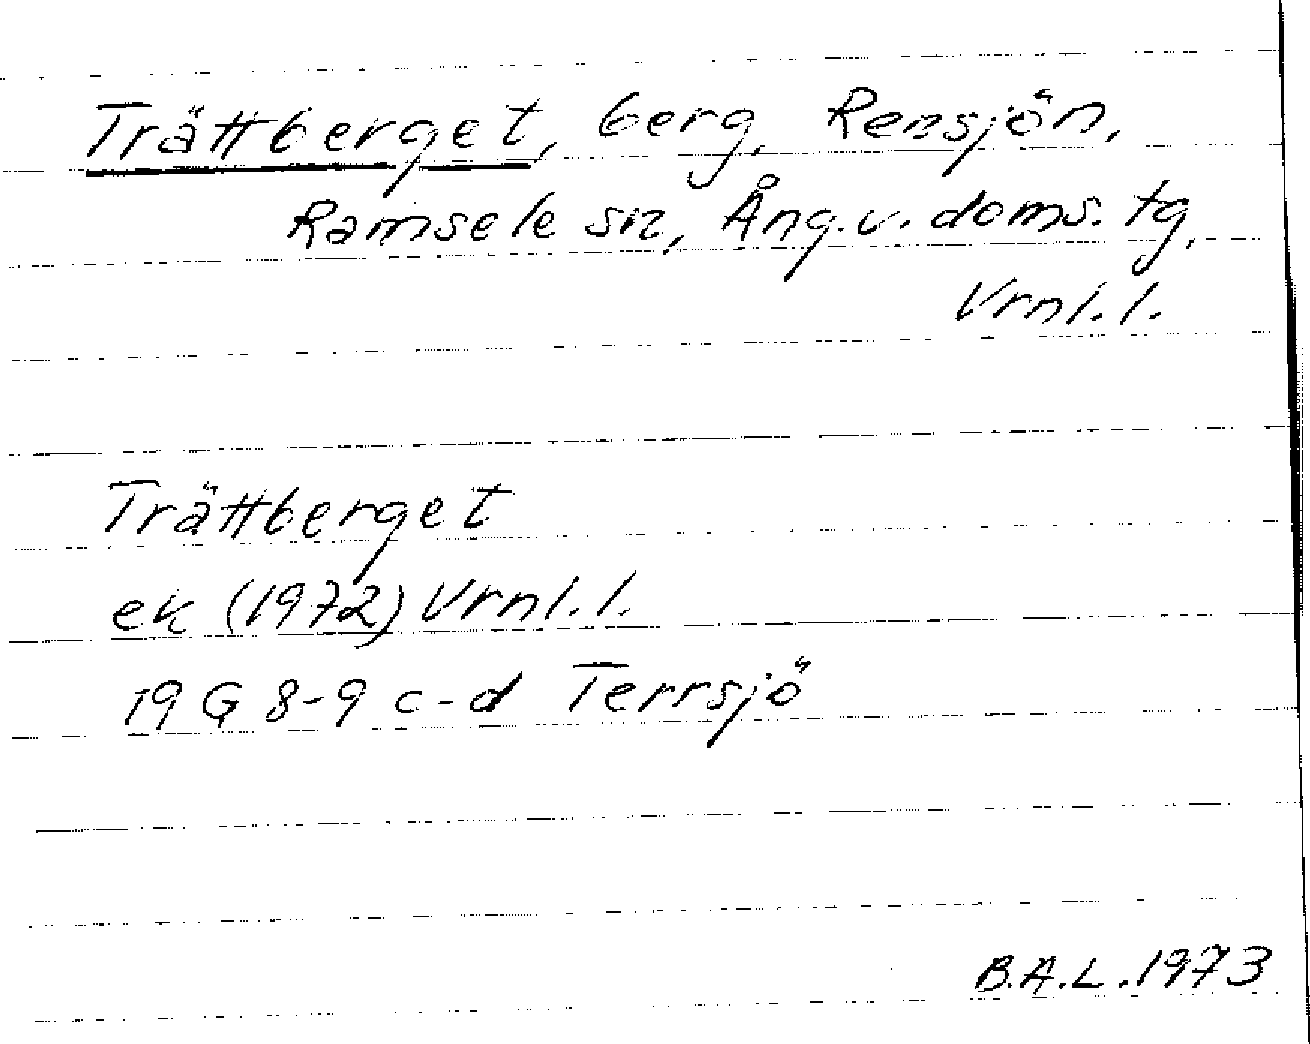 Trättberget, berg, Rensjön,
Ramsele sn, Ång.v. doms. tg,
Vrnl. l.
Trättberget
ek (1972) Vrnl. l.
19 G 8-9 c-d Terrsjö
B.A.L. 1973